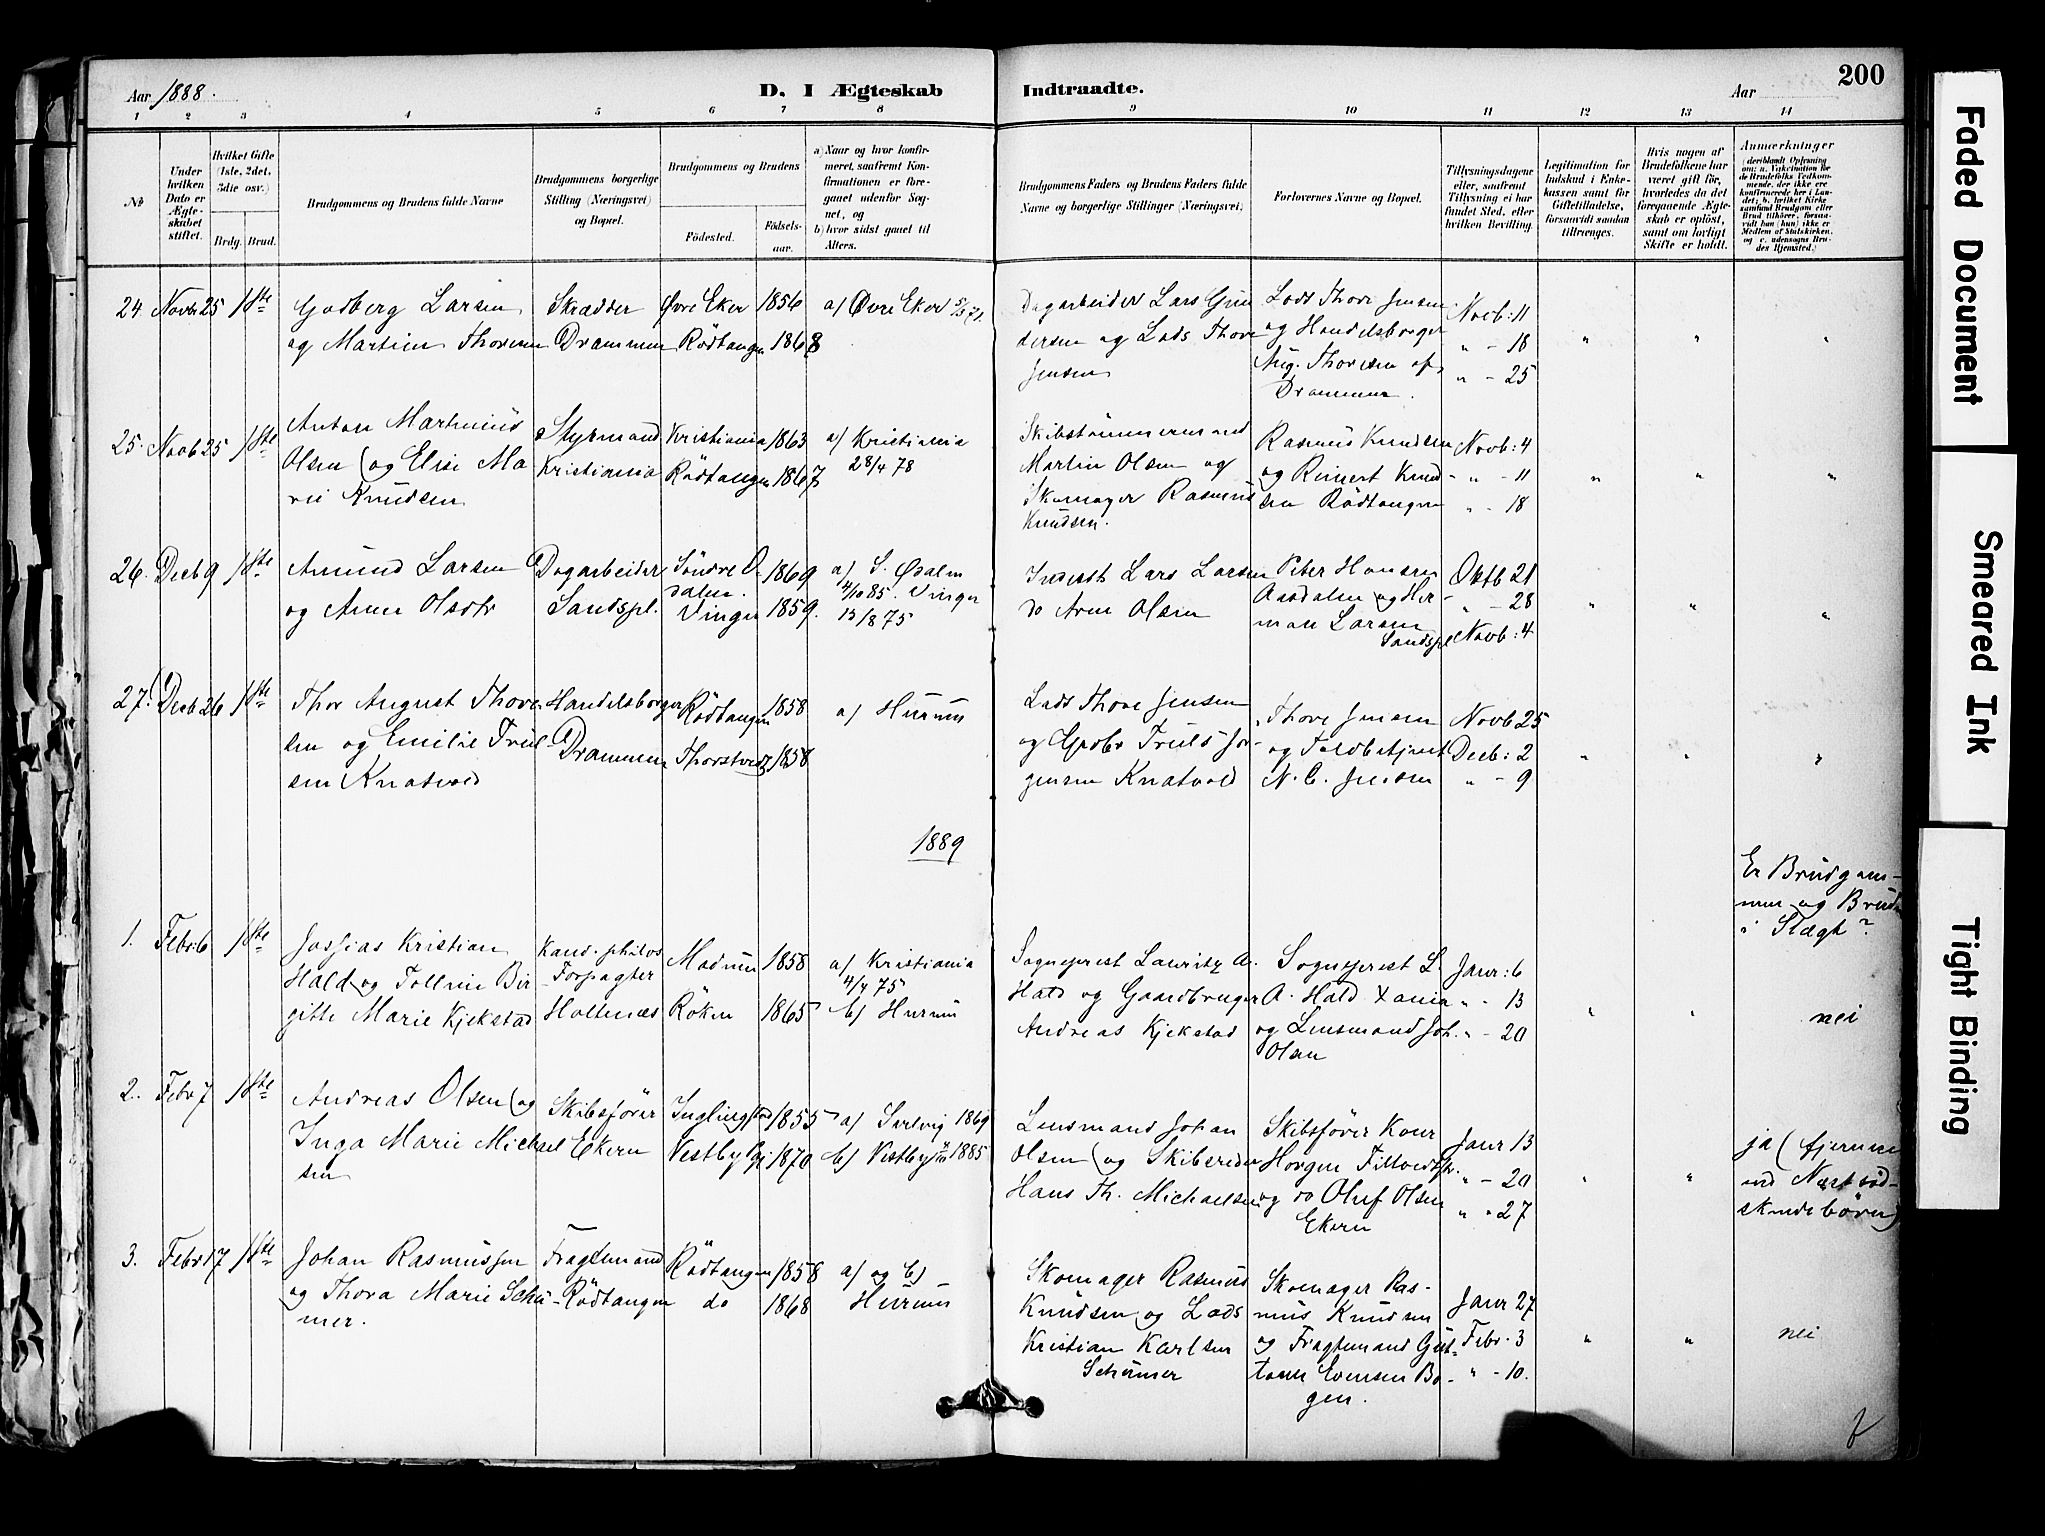 Aar 1888.
D. I Ægteskab Indtraadte.
Aar
200
1 2 3 4 5 6 7 8 9 10 11 12 13 14
№
Under hvilken Dato er Ægteskabet stiftet.
Hvilket Gifte (1ste, 2det, 3die osv.)
Brdg. Brud.
Brudgommens og Brudens fulde Navne
Brudgommens borgerlige Stilling (Næringsvei) og Bopæl.
Brudgommens og Brudens
Fødested.
Fødselsaar.
a) Naar og hvor konfirmeret, saafremt Konfirmationen er foregaaet udenfor Sognet, og
b) hvor sidst gaaet til Alters.
Brudgommens Faders og Brudens Faders fulde Navne og borgerlige Stillinger (Næringsvei)
Forlovernes Navne og Bopæl.
Tillysningsdagene eller, saafremt Tillysning ei har fundet Sted, efter hvilken Bevilling.
Legitimation for Indskud i Enkekassen samt for Giftetilladelse, forsaavidt saadan tiltrænges.
Hvis nogen af Brudefolkene har været gift før, hvorledes da det foregaaende Ægteskab er opløst, samt om lovligt Skifte er holdt.
Anmærkninger
(deriblandt Oplysning om: a. Vakcination for de Brudefolks Vedkommende, der ikke ere konfirmerede her i Landet; b. hvilket Kirkesamfund Brudgom eller Brud tilhører, forsaavidt han (hun) ikke er Medlem af Statskirken, og c. udensogns Brudes Hjemsted.)
24. Novb 25 1ste
Godberg Larsen
og Martine Thoresen
Skrædder
Drammen
Øvre Eker 1856
Rödtangen 1868
a) Øvre Eker 5/3 71.
Dagarbeider Lars Gun
dersen og Lods Thore
Jensen
Lods Thore Jensen
og Handelsborger
Aug. Thoresen af
Drammen.
Novb: 11
" - 18
" - 25
" " "
25. Novb 25 1ste
Anton Martinius
Olsen og Elise Ma
rie Knudsen
Styrmand
Kristiania
Kristiania 1863
Rödtangen 1867
a) Kristiania
28/4 78
Skibstömmermand
Martin Olsen og
Skomager Rasmus
Knudsen.
Rasmus Knudsen
og Reinert Knud
sen Rödtangen
Novb: 4
" - 11
" - 18
" " "
26. Decb 9 1ste
Amund Larsen
og Anne Olsdtr
Dagarbeider
Sandspl.
Söndre O
dalen. 1869
Vinger 1859.
a) S. Ødalen
4/10 85. Vinger
15/8 75
Inderst Lars Larsen
do Arne Olsen
Peter Hansen
Aasdalen og Her
man Larsen
Sandspl
Oktb 21
" - 28
Novb: 4
" " "
27. Decb 26 1ste
Thor August Thore
sen og Emilie Trul
sen Knatvold
Handelsborger
Drammen
Rödtangen 1858
Thorstvedt 1858
a) Hurum
Lods Thore Jensen
og Grdbr Truls Jör
gensen Knatvold
Thore Jensen
og Toldbetjent
N. C. Jensen
Novb 25
Decb: 2
" - 9
" " "
1889
Er Brudgom-
men og Brud
i Slægt?
1. Febr: 6 1ste
Jossias Kristian
Hald og Tolline Bir
gitte Marie Kjekstad
Kand. philos
Forpagter
Holtenæs
Modum 1858
Röken 1865
a) Kristiania
4/4 75
b) Hurum
Sogneprest Lauritz A.
Hald og Gaardbruger
Andreas Kjekstad
Sogneprest L.
A. Hald Xania
og Lensmand Joh.
Olsen
Janr: 6
" - 13
" - 20
" "
nei
2. Febr 7 1ste
Andreas Olsen og
Inga Marie Michael
sen
Skibsförer
Ekern
Inglingstad 1855
Vestby Pgj 1870
a) Svelvig 1869
b) Vestby 1885
Lensmand Johan
Olsen og Skibsreder
Hans Th. Michaelsen
Skibsförer Konr
Horgen Filtvedt
og do Oluf Olsen
Ekern
Janr 13
" - 20
" - 27
" "
ja (fjernere
end Næstsöd-
skendebörn)
3. Febr 17 1ste
Johan Rasmussen
og Thora Marie Schü-
mer.
Fragtemand
Rödtangen
Rödtangen 1858
do 1868
a) og b)
Hurum
Skomager Rasmus
Knudsen og Lods
Kristian Karlsen
Schümer
Skomager Ras-
mus Knudsen
og Fragtemand Gus-
tave Evensen Bo-
gen.
Janr 27
Febr. 3
" - 10.
" "
nei
Faded Document
Smeared Ink
Tight Binding